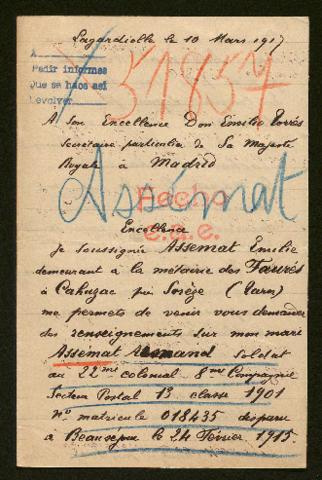 Lagardiolle le 10 Mars 1917
A
Pedir informes
que se haos asi
Devolver
51857
A Son Excellence Don Emilio Torrés
Secrétaire particulier de Sa Majesté
Royale à Madrid
Assémat
Hecho
Excellence
Je soussignée Assemat Emilie
demeurant à la métairie des Faurés
à Cahuzac près Sorèze (Tarn)
me permets de venir vous demander
des renseignements sur mon mari
Assémat Armand Soldat
au 22me colonial 8me Compagnie
Secteur Postal 13 classe 1901
No matricule 018435 disparu
à Beauséjour le 24 Février 1915.